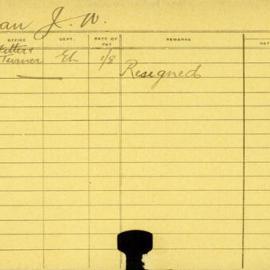 an J. W.
OFFICE DEPT. RATE OF PAY REMARKS
Fitter &
Turner Eh 1/8 Resigned